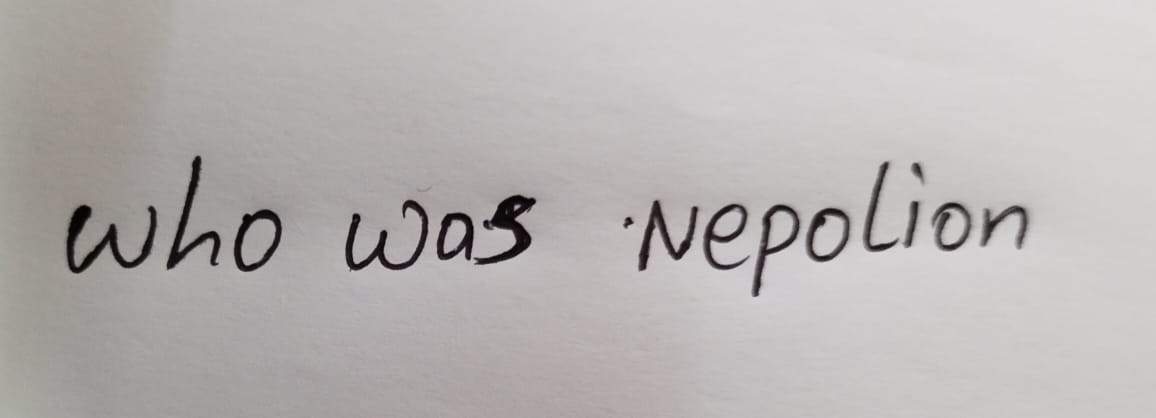 who was Nepolion